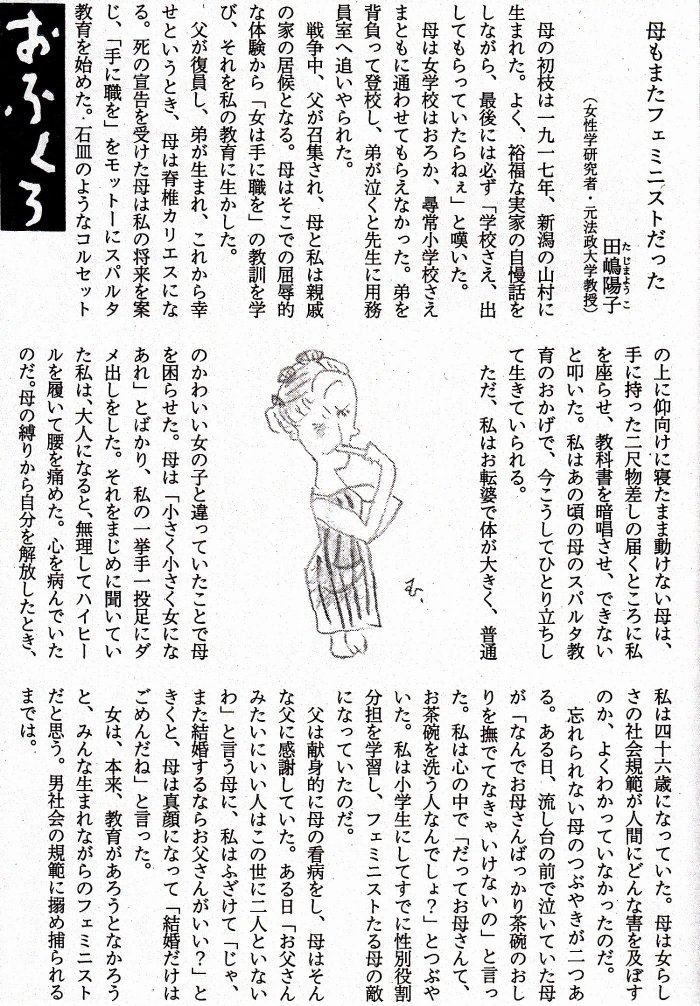 母もまたフェミニストだった
田嶋陽子
たじまようこ
（女性学研究者・元法政大学教授）
母の初枝は一九一七年、新潟の山村に
生まれた。よく、裕福な実家の自慢話を
しながら、最後には必ず「学校さえ、出
してもらっていたらねぇ」と嘆いた。
母は女学校はおろか、尋常小学校さえ
まともに通わせてもらえなかった。弟を
背負って登校し、弟が泣くと先生に用務
員室へ追いやられた。
戦争中、父が召集され、母と私は親戚
の家の居候となる。母はそこでの屈辱的
な体験から「女は手に職を」の教訓を学
び、それを私の教育に生かした。
父が復員し、弟が生まれ、これから幸
せというとき、母は脊椎カリエスにな
る。死の宣告を受けた母は私の将来を案
じ、「手に職を」をモットーにスパルタ
教育を始めた。石皿のようなコルセット
おふくろ
の上に仰向けに寝たまま動けない母は、
手に持った二尺物差しの届くところに私
を座らせ、教科書を暗唱させ、できない
と叩いた。私はあの頃の母のスパルタ教
育のおかげで、今こうしてひとり立ちし
て生きていられる。
ただ、私はお転婆で体が大きく、普通
のかわいい女の子と違っていたことで母
を困らせた。母は「小さく小さく女にな
あれ」とばかり、私の一挙手一投足にダ
メ出しをした。それをまじめに聞いてい
た私は、大人になると、無理してハイヒー
ルを履いて腰を痛めた。心を病んでいた
のだ。母の縛りから自分を解放したとき、
私は四十六歳になっていた。母は女らし
さの社会規範が人間にどんな害を及ぼす
のか、よくわかっていなかったのだ。
忘れられない母のつぶやきが二つあ
る。ある日、流し台の前で泣いていた母
が「なんでお母さんばっかり茶碗のおし
りを撫でてなきゃいけないの」と言っ
た。私は心の中で「だってお母さんて、
お茶碗を洗う人なんでしょ？」とつぶや
いた。私は小学生にしてすでに性別役割
分担を学習し、フェミニストたる母の敵
になっていたのだ。
父は献身的に母の看病をし、母はそん
な父に感謝していた。ある日「お父さん
みたいにいい人はこの世に二人といない
わ」と言う母に、私はふざけて「じゃ、
また結婚するならお父さんがいい？」と
きくと、母は真顔になって「結婚だけは
ごめんだね」と言った。
女は、本来、教育があろうとなかろう
と、みんな生まれながらのフェミニスト
だと思う。男社会の規範に搦め捕られる
までは。